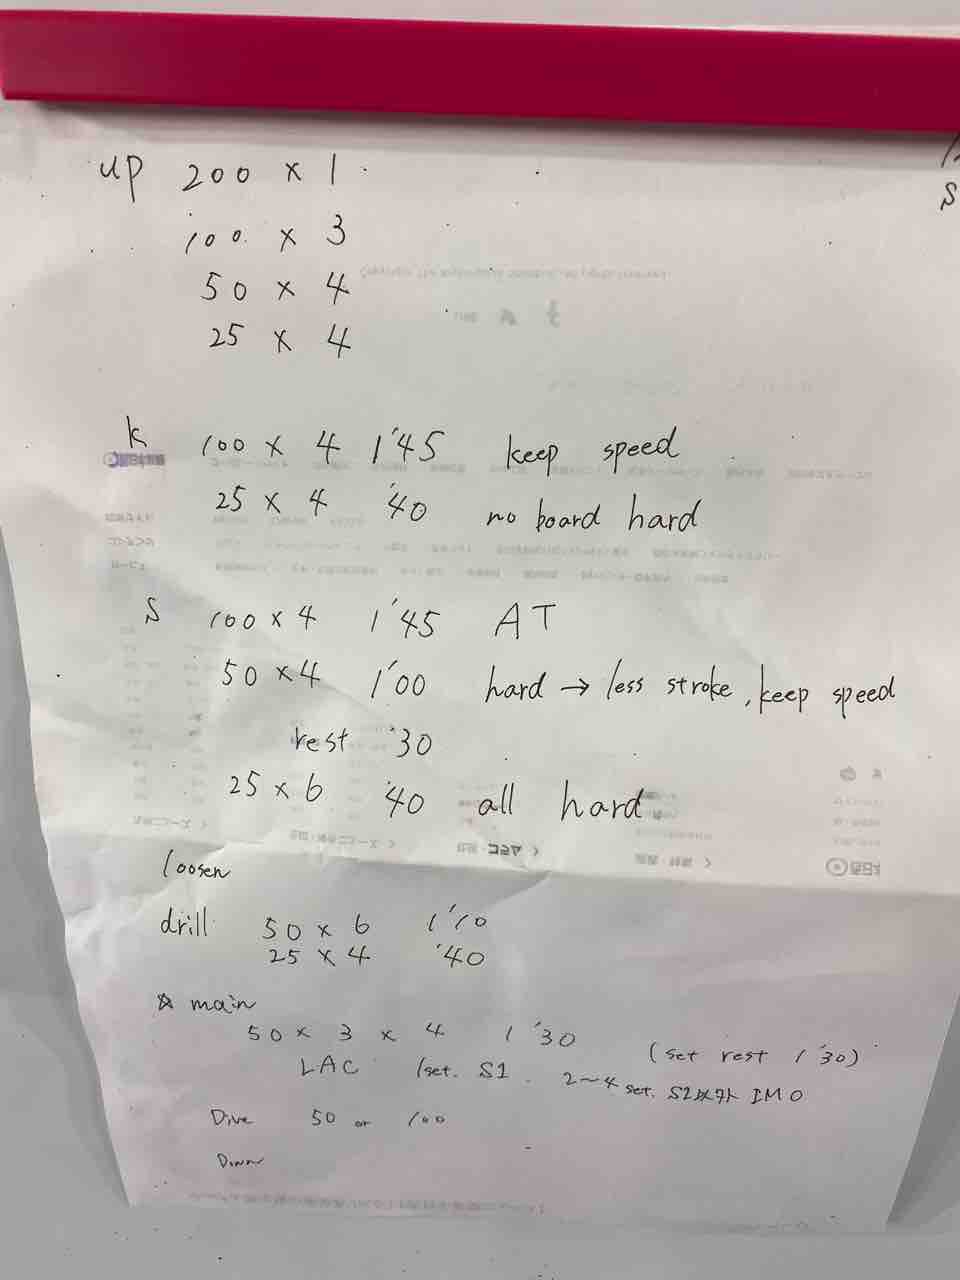 up 200 × 1
100 × 3
50 × 4
25 × 4
k 100 × 4 1'45 keep speed
25 × 4 '40 no board hard
S 100 × 4 1'45 AT
50 × 4 1'00 hard → less stroke, keep speed
rest '30
25 × 6 '40 all hard
loosen
drill 50 × 6 1'10
25 × 4 '40
☆ main
50 × 3 × 4 1'30 (set rest 1'30)
LAC 1set. S1. 2~4 set. S1以外 IMO
Dive 50 or 100
Down